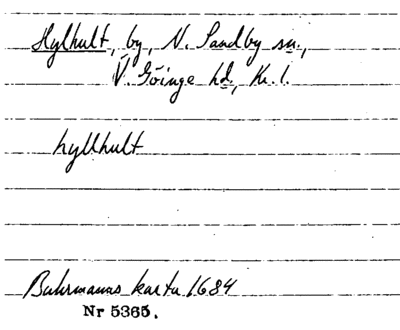 Hylhult, by, N. Sandby sn.,
V. Göinge hd, Kr. l.
hyllhult
Buhrmanns karta 1684
Nr 5365.